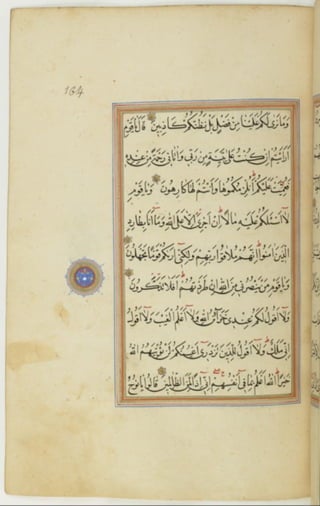 164
وَمَا نَرٰى لَكُمْ عَلَيْنَا مِنْ فَضْلٍ بَلْ نَظُنُّكُمْ كَاذِبِينَ قَالَ يَا قَوْمِ
اَرَاَيْتُمْ اِنْ كُنْتُ عَلٰى بَيِّنَةٍ مِنْ رَبِّى وَاٰتَانِى رَحْمَةً مِنْ عِنْدِهِ
فَعُمِّيَتْ عَلَيْكُمْ اَنُلْزِمُكُمُوهَا وَاَنْتُمْ لَهَا كَارِهُونَ وَيَا قَوْمِ
لَا اَسْئَلُكُمْ عَلَيْهِ مَالًا اِنْ اَجْرِىَ اِلَّا عَلَى اللّٰهِ وَمَا اَنَا بِطَارِدِ
الَّذِينَ اٰمَنُوا اِنَّهُمْ مُلَاقُوا رَبِّهِمْ وَلٰكِنِّى اَرٰيكُمْ قَوْمًا تَجْهَلُونَ
وَيَا قَوْمِ مَنْ يَنْصُرُنِى مِنَ اللّٰهِ اِنْ طَرَدْتُهُمْ اَفَلَا تَذَكَّرُونَ
وَلَا اَقُولُ لَكُمْ عِنْدِى خَزَائِنُ اللّٰهِ وَلَا اَعْلَمُ الْغَيْبَ وَلَا اَقُولُ
اِنِّى مَلَكٌ وَلَا اَقُولُ لِلَّذِينَ تَزْدَرِى اَعْيُنُكُمْ لَنْ يُؤْتِيَهُمُ اللّٰهُ
خَيْرًا اَللّٰهُ اَعْلَمُ بِمَا فِى اَنْفُسِهِمْ اِنِّى اِذًا لَمِنَ الظَّالِمِينَ قَالُوا يَا نُوحُ